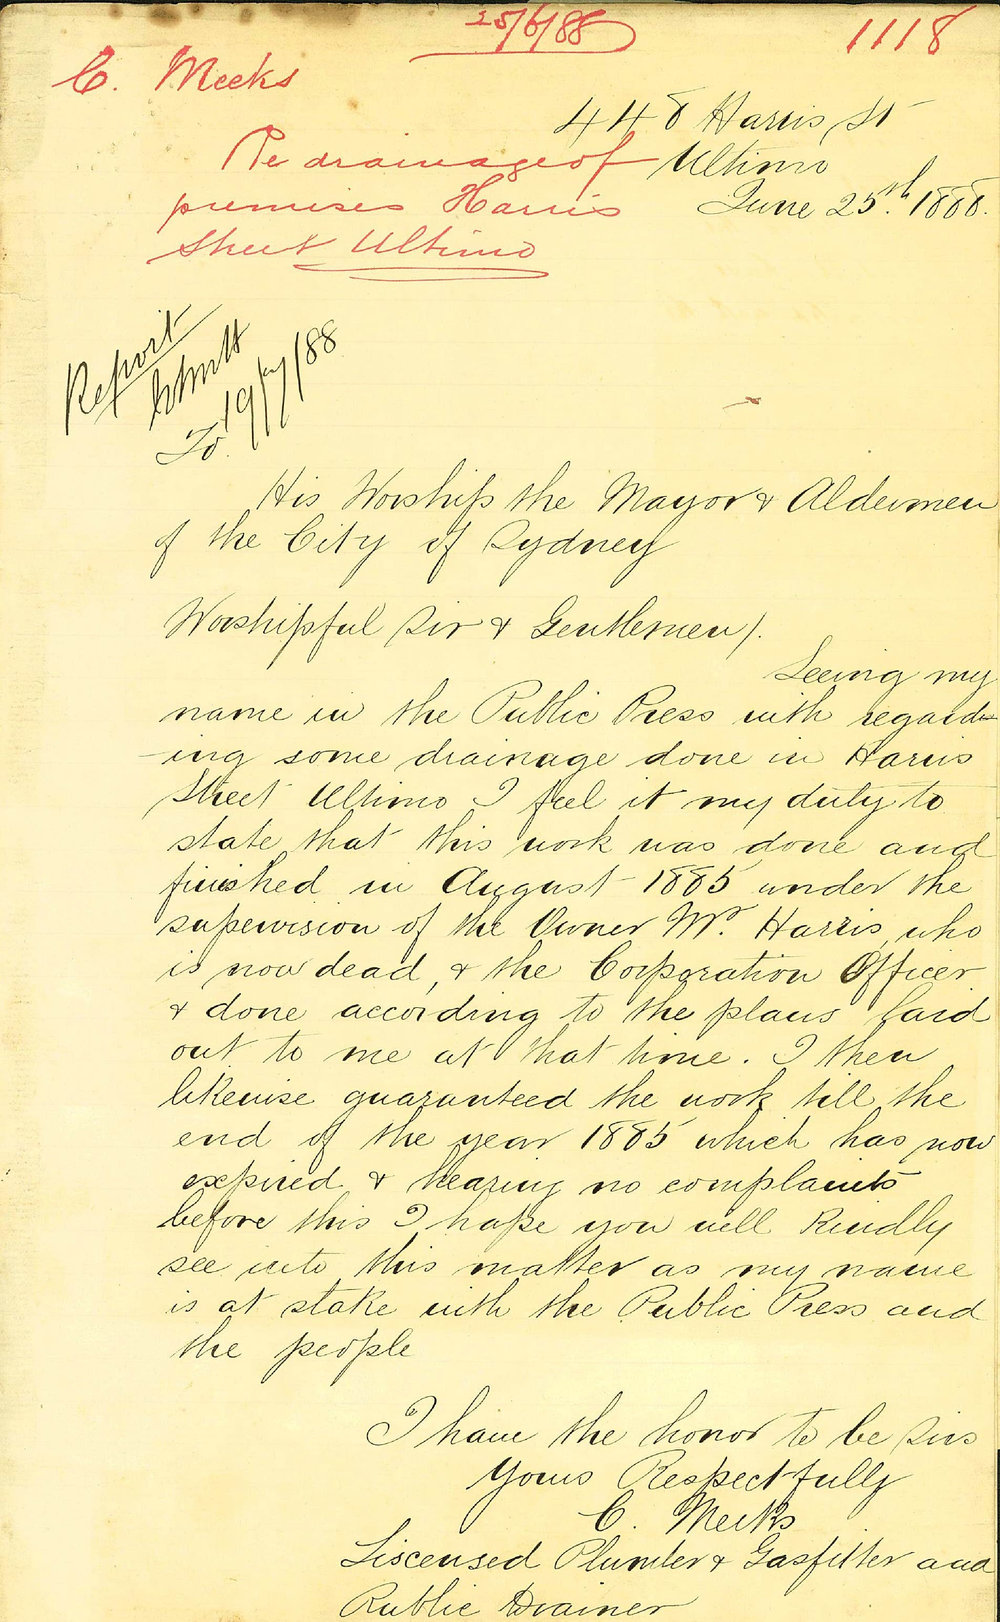 25/6/88
1118
C. Meeks
Re drainage of
premises Harris
Street Ultimo
448 Harris St
Ultimo
June 25th. 1888.
Report
19/7/88
To.
His Worship the Mayor & Aldermen
of the City of Sydney
Worshipful Sir & Gentlemen/.
Seeing my
name in the Public Press with regard-
-ing some drainage done in Harris
Street Ultimo I feel it my duty to
state that this work was done and
finished in August 1885 under the
supervision of the Owner Mr. Harris, who
is now dead, & the Corporation Officer
& done according to the plans laid
out to me at that time. I then
likewise guaranteed the work till the
end of the year 1885 which has now
expired & hearing no complaints
before this I hope you will kindly
see into this matter as my name
is at stake with the Public Press and
the people
I have the honor to be Sirs
Yours Respectfully
C. Meeks
Liscensed Plumber & Gasfitter and
Public Drainer